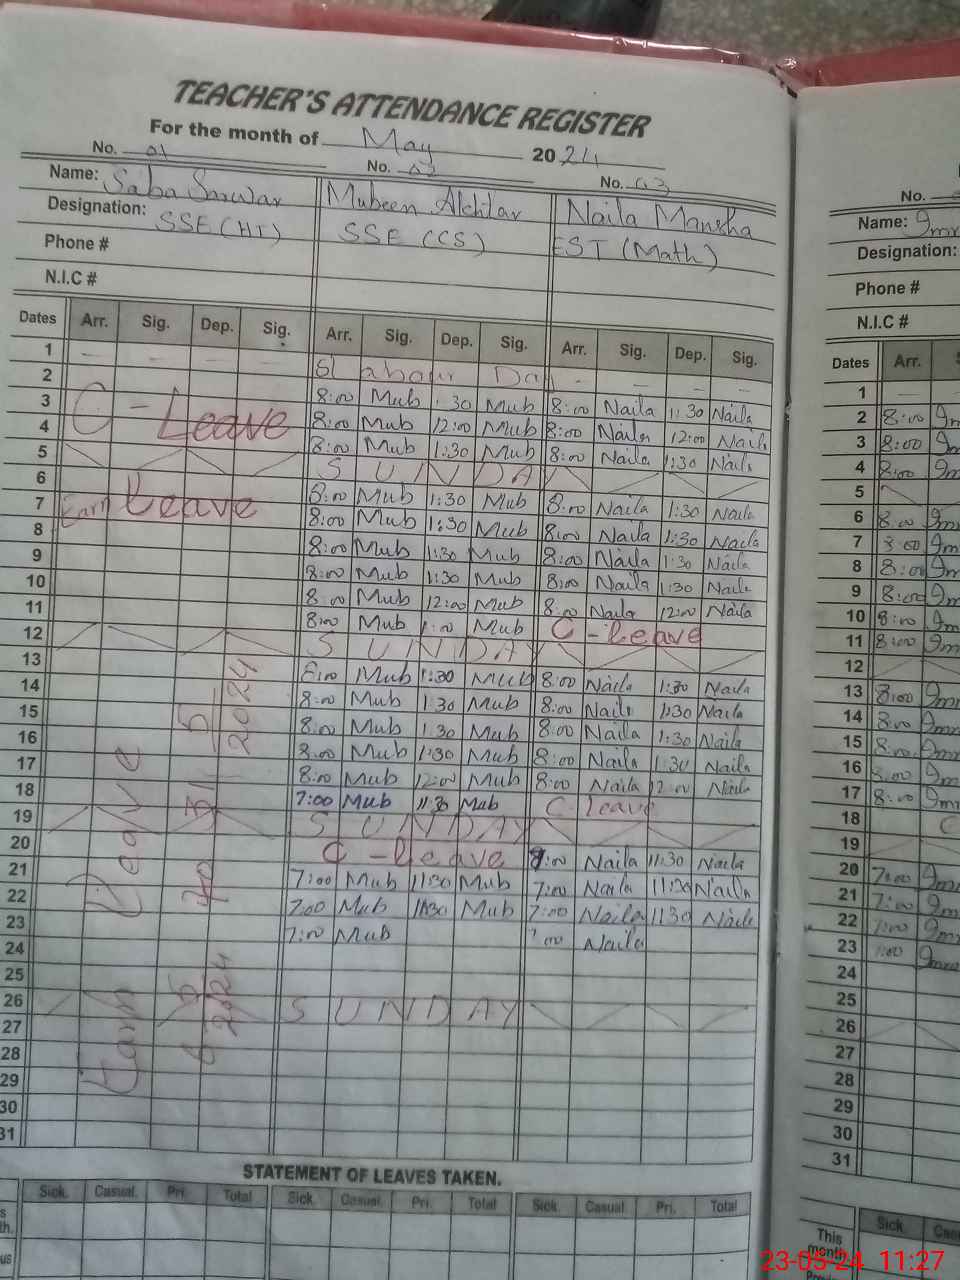 TEACHER'S ATTENDANCE REGISTER
For the month of May 2024
No. 01 No. 02 No. 03
Name: Saba Sarwar Mubeen Akhtar Naila Mansha
Designation: SSE (HT) SSE (CS) EST (Math)
Phone #
N.I.C #
Dates Arr. Sig. Dep. Sig. Arr. Sig. Dep. Sig. Arr. Sig. Dep. Sig.
1 — — — — Labour Day — — —
2 8:00 Mub 1:30 Mub 8:00 Naila 1:30 Naila
3 C - Leave 8:00 Mub 12:00 Mub 8:00 Naila 12:00 Naila
4 8:00 Mub 1:30 Mub 8:00 Naila 1:30 Naila
5 SUNDAY
6 Earn Leave 8:00 Mub 1:30 Mub 8:00 Naila 1:30 Naila
7 8:00 Mub 1:30 Mub 8:00 Naila 1:30 Naila
8 8:00 Mub 1:30 Mub 8:00 Naila 1:30 Naila
9 8:00 Mub 1:30 Mub 8:00 Naila 1:30 Naila
10 8:00 Mub 12:00 Mub 8:00 Naila 12:00 Naila
11 8:00 Mub Mub C - Leave
12 SUNDAY
13 8:00 Mub 1:30 Mub 8:00 Naila 1:30 Naila
14 8:00 Mub 1:30 Mub 8:00 Naila 1:30 Naila
15 8:00 Mub 1:30 Mub 8:00 Naila 1:30 Naila
16 8:00 Mub 1:30 Mub 8:00 Naila 1:30 Naila
17 8:00 Mub 12:00 Mub 8:00 Naila 12:00 Naila
18 7:00 Mub 11:30 Mub C - Leave
19 SUNDAY
20 C - Leave Naila 11:30 Naila
21 7:00 Mub 11:30 Mub 7:00 Naila 11:30 Naila
22 7:00 Mub 11:30 Mub 7:00 Naila 11:30 Naila
23 7:00 Mub 7:00 Naila
24
25
26 SUNDAY
27
28
29
30
31
Earn Leave
5 2024 To 31 5 2024
STATEMENT OF LEAVES TAKEN.
Sick. Casual. Pri. Total Sick. Casual. Pri. Total Sick. Casual. Pri. Total
No.
Name:
Designation:
Phone #
N.I.C #
Dates Arr.
1 —
2 8:00
3 8:00
4 8:00
5
6 8:00
7 8:00
8 8:00
9 8:00
10 8:00
11 8:00
12
13 8:00
14 8:00
15 8:00
16 8:00
17 8:00
18 C
19
20 7:00
21 7:00
22 7:00
23 7:00
24
25
26
27
28
29
30
31
Sick.
This month
23-05-24 11:27